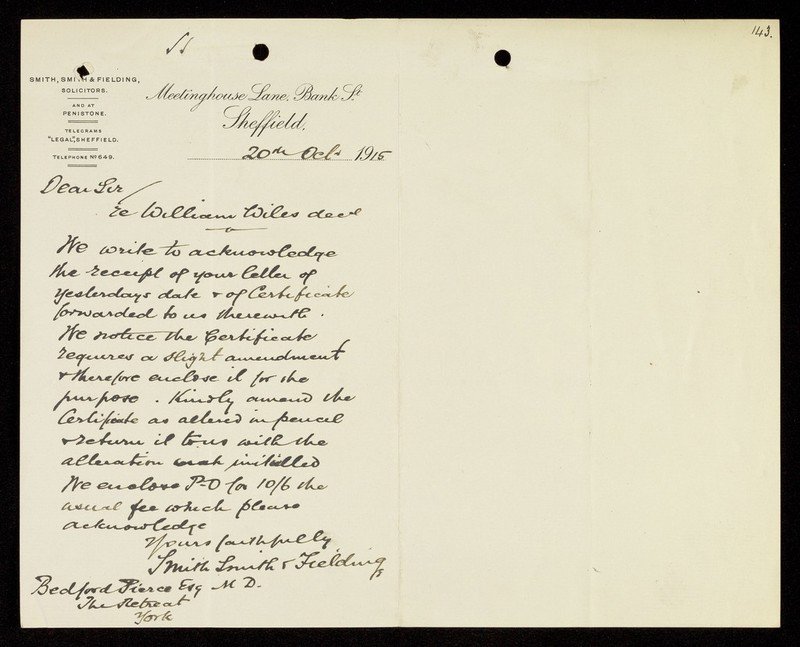 143.
SMITH, SMITH & FIELDING,
SOLICITORS.
AND AT
PENISTONE.
TELEGRAMS
"LEGAL", SHEFFIELD.
TELEPHONE No 649.
Meetinghouse Lane, Bank St
Sheffield,
20th Octr 1915
Dear Sir
re William Wiles decd
We write to acknowledge
the receipt of your letter of
yesterdays date & of Certificate
forwarded to us therewith.
We notice the Certificate
requires a slight amendment
& therefore enclose it for the
purpose. Kindly amend the
Certificate as altered in pencil
& return it to us with the
alteration initialled
We enclose P-O for 10/6 the
usual fee which please
acknowledge
Yours faithfully
Smith Smith & Fielding
Bedford Pierce Esq M D.
The Retreat
York